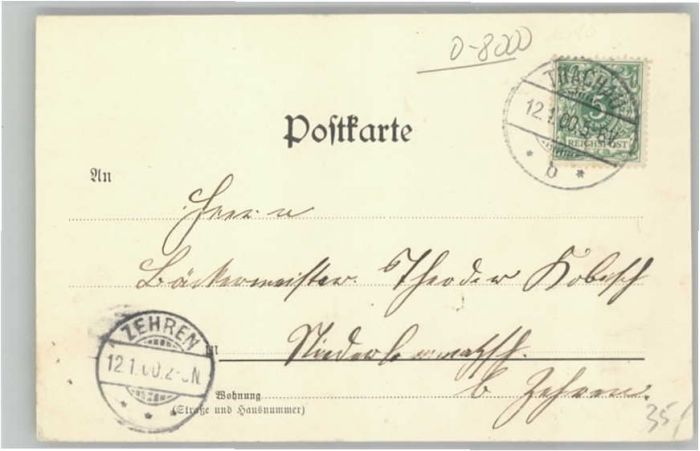 D-8000
TRACHAU
12.1.00.5-6V.
* b *
5
REICHSPOST
Postkarte
An
Herrn
Bäckermeister Theodor Kobisch
in Niederlommatzsch
b. Zehren.
ZEHREN
12.1.00.2-3N.
* *
Wohnung
(Straße und Hausnummer)
35,-